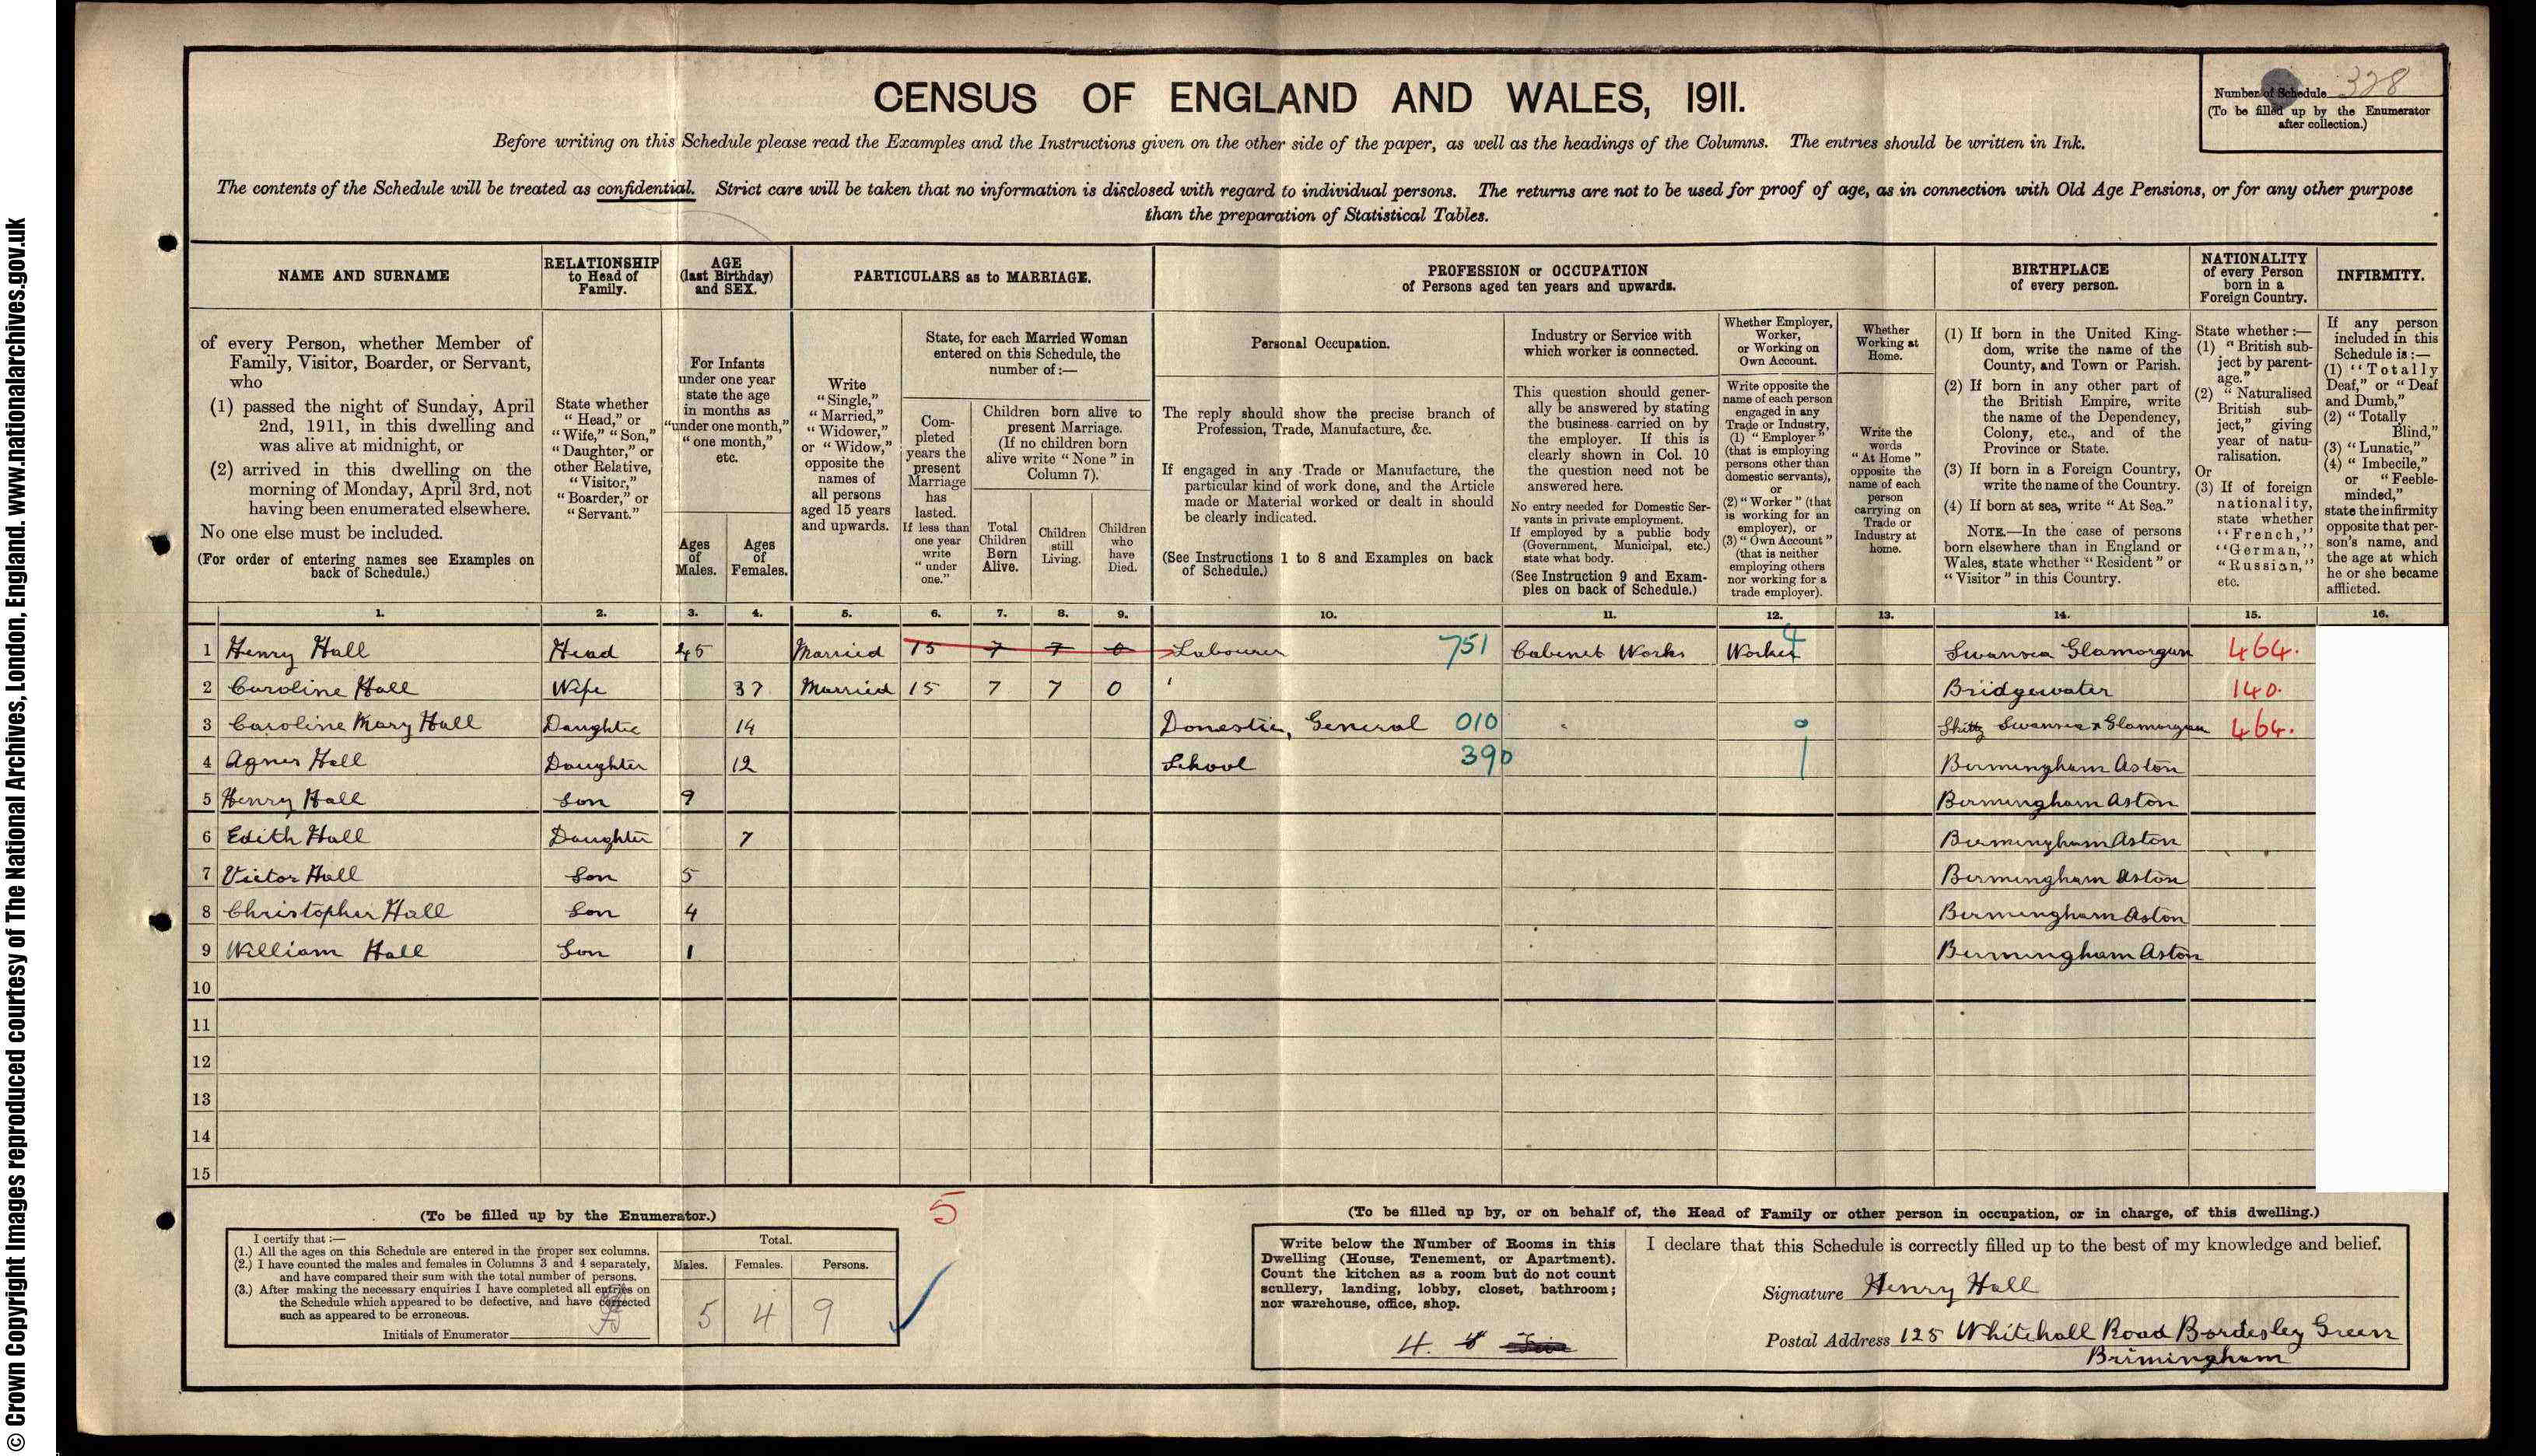 CENSUS OF ENGLAND AND WALES, 1911.
Number of Schedule 328
(To be filled up by the Enumerator
after collection.)
Before writing on this Schedule please read the Examples and the Instructions given on the other side of the paper, as well as the headings of the Columns. The entries should be written in Ink.
The contents of the Schedule will be treated as confidential. Strict care will be taken that no information is disclosed with regard to individual persons. The returns are not to be used for proof of age, as in connection with Old Age Pensions, or for any other purpose
than the preparation of Statistical Tables.
NAME AND SURNAME
of every Person, whether Member of
Family, Visitor, Boarder, or Servant,
who
(1) passed the night of Sunday, April
2nd, 1911, in this dwelling and
was alive at midnight, or
(2) arrived in this dwelling on the
morning of Monday, April 3rd, not
having been enumerated elsewhere.
No one else must be included.
(For order of entering names see Examples on
back of Schedule.)
RELATIONSHIP
to Head of
Family.
State whether
"Head," or
"Wife," "Son,"
"Daughter," or
other Relative,
"Visitor,"
"Boarder," or
"Servant."
AGE
(last Birthday)
and SEX.
For Infants
under one year
state the age
in months as
"under one month,"
"one month,"
etc.
Ages
of
Males.
Ages
of
Females.
PARTICULARS as to MARRIAGE.
Write
"Single,"
"Married,"
"Widower,"
or "Widow,"
opposite the
names of
all persons
aged 15 years
and upwards.
State, for each Married Woman
entered on this Schedule, the
number of:—
Com-
pleted
years the
present
Marriage
has
lasted.
If less than
one year
write
"under
one."
Children born alive to
present Marriage.
(If no children born
alive write "None" in
Column 7).
Total
Children
Born
Alive.
Children
still
Living.
Children
who
have
Died.
PROFESSION or OCCUPATION
of Persons aged ten years and upwards.
Personal Occupation.
The reply should show the precise branch of
Profession, Trade, Manufacture, &c.
If engaged in any Trade or Manufacture, the
particular kind of work done, and the Article
made or Material worked or dealt in should
be clearly indicated.
(See Instructions 1 to 8 and Examples on back
of Schedule.)
Industry or Service with
which worker is connected.
This question should gener-
ally be answered by stating
the business carried on by
the employer. If this is
clearly shown in Col. 10
the question need not be
answered here.
No entry needed for Domestic Ser-
vants in private employment.
If employed by a public body
(Government, Municipal, etc.)
state what body.
(See Instruction 9 and Exam-
ples on back of Schedule.)
Whether Employer,
Worker,
or Working on
Own Account.
Write opposite the
name of each person
engaged in any
Trade or Industry,
(1) "Employer"
(that is employing
persons other than
domestic servants),
or
(2) "Worker" (that
is working for an
employer), or
(3) "Own Account"
(that is neither
employing others
nor working for a
trade employer).
Whether
Working at
Home.
Write the
words
"At Home"
opposite the
name of each
person
carrying on
Trade or
Industry at
home.
BIRTHPLACE
of every person.
(1) If born in the United King-
dom, write the name of the
County, and Town or Parish.
(2) If born in any other part of
the British Empire, write
the name of the Dependency,
Colony, etc., and of the
Province or State.
(3) If born in a Foreign Country,
write the name of the Country.
(4) If born at sea, write "At Sea."
NOTE.—In the case of persons
born elsewhere than in England or
Wales, state whether "Resident" or
"Visitor" in this Country.
NATIONALITY
of every Person
born in a
Foreign Country.
State whether:—
(1) "British sub-
ject by parent-
age."
(2) "Naturalised
British sub-
ject," giving
year of natu-
ralisation.
Or
(3) If of foreign
nationality,
state whether
"French,"
"German,"
"Russian,"
etc.
INFIRMITY.
If any person
included in this
Schedule is:—
(1) "Totally
Deaf," or "Deaf
and Dumb,"
(2) "Totally
Blind,"
(3) "Lunatic,"
(4) "Imbecile,"
or "Feeble-
minded,"
state the infirmity
opposite that per-
son's name, and
the age at which
he or she became
afflicted.
1. 2. 3. 4. 5. 6. 7. 8. 9. 10. 11. 12. 13. 14. 15. 16.
1 Henry Hall Head 45 Married 15 7 7 0 Labourer 751 Cabinet Works Worker 4 Swansea Glamorgan 464.
2 Caroline Hall Wife 37 Married 15 7 7 0 Bridgewater 140.
3 Caroline Mary Hall Daughter 14 Domestic, General 010 0 Skitty Swansea Glamorgan 464.
4 Agnes Hall Daughter 12 School 390 Birmingham Aston
5 Henry Hall Son 9 Birmingham Aston
6 Edith Hall Daughter 7 Birmingham Aston
7 Victor Hall Son 5 Birmingham Aston
8 Christopher Hall Son 4 Birmingham Aston
9 William Hall Son 1 Birmingham Aston
10
11
12
13
14
15
5
(To be filled up by the Enumerator.)
I certify that:—
(1.) All the ages on this Schedule are entered in the proper sex columns.
(2.) I have counted the males and females in Columns 3 and 4 separately,
and have compared their sum with the total number of persons.
(3.) After making the necessary enquiries I have completed all entries on
the Schedule which appeared to be defective, and have corrected
such as appeared to be erroneous.
Initials of Enumerator
Total.
Males. Females. Persons.
5 4 9
(To be filled up by, or on behalf of, the Head of Family or other person in occupation, or in charge, of this dwelling.)
Write below the Number of Rooms in this
Dwelling (House, Tenement, or Apartment).
Count the kitchen as a room but do not count
scullery, landing, lobby, closet, bathroom;
nor warehouse, office, shop.
4.
I declare that this Schedule is correctly filled up to the best of my knowledge and belief.
Signature Henry Hall
Postal Address 125 Whitehall Road Bordesley Green
Brimingham
© Crown Copyright Images reproduced courtesy of The National Archives, London, England. www.nationalarchives.gov.uk